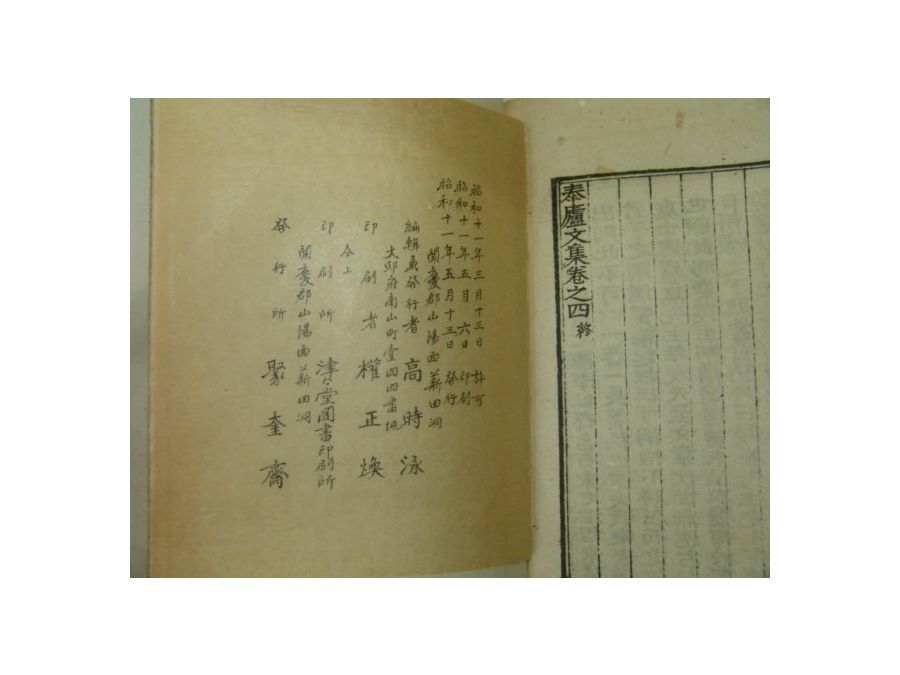 泰廬文集卷之四 終
昭和十一年三月十三日 許可
昭和十一年五月六日 印刷
昭和十一年五月十三日 發行
聞慶郡山陽面薪田洞
編輯兼發行者 高時泳
大邱府南山町壹四四番地
印刷者 權正煥
仝上
印刷所 津々堂圖書印刷所
聞慶郡山陽面薪田洞
發行所 聚奎齋